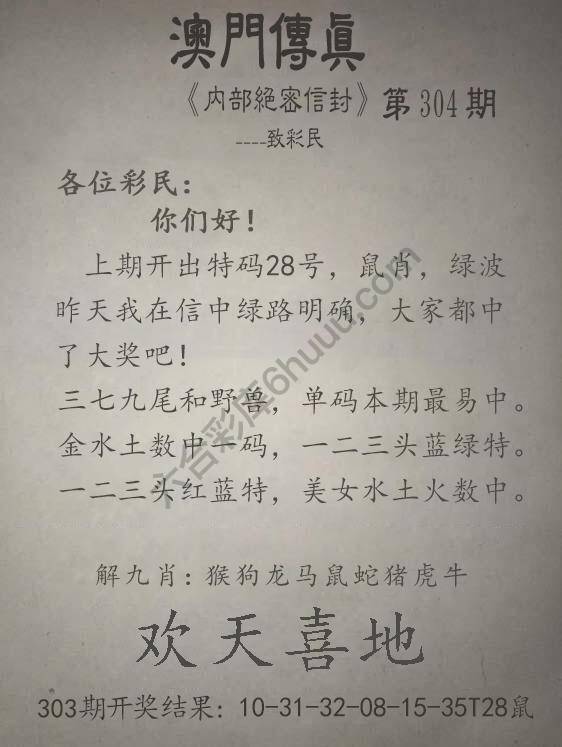 澳門傳真
《内部絕密信封》第304期
----致彩民
各位彩民：
你们好！
上期开出特码28号，鼠肖，绿波
昨天我在信中绿路明确，大家都中
了大奖吧！
三七九尾和野兽，单码本期最易中。
金水土数中一码，一二三头蓝绿特。
一二三头红蓝特，美女水土火数中。
解九肖：猴狗龙马鼠蛇猪虎牛
欢天喜地
303期开奖结果：10-31-32-08-15-35T28鼠
六合彩库6huuu.com